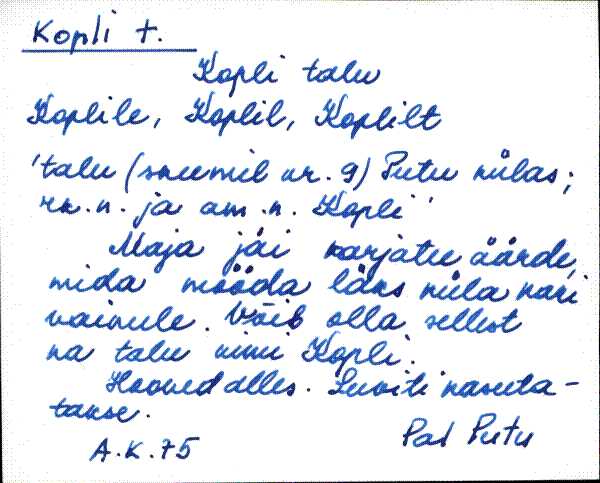 Kopli t.
Kopli talu
Koplile, Koplil, Koplilt
'talu (skeemil nr. 9) Putu külas;
rk. n. ja am. n. Kopli'
Maja jäi karjatee äärde,
mida mööda läks küla kari
vainule. Võib olla sellest
ka talu nimi Kopli.
Hooned alles. Suviti kasuta-
takse.
Pal Putu
A.K. 75